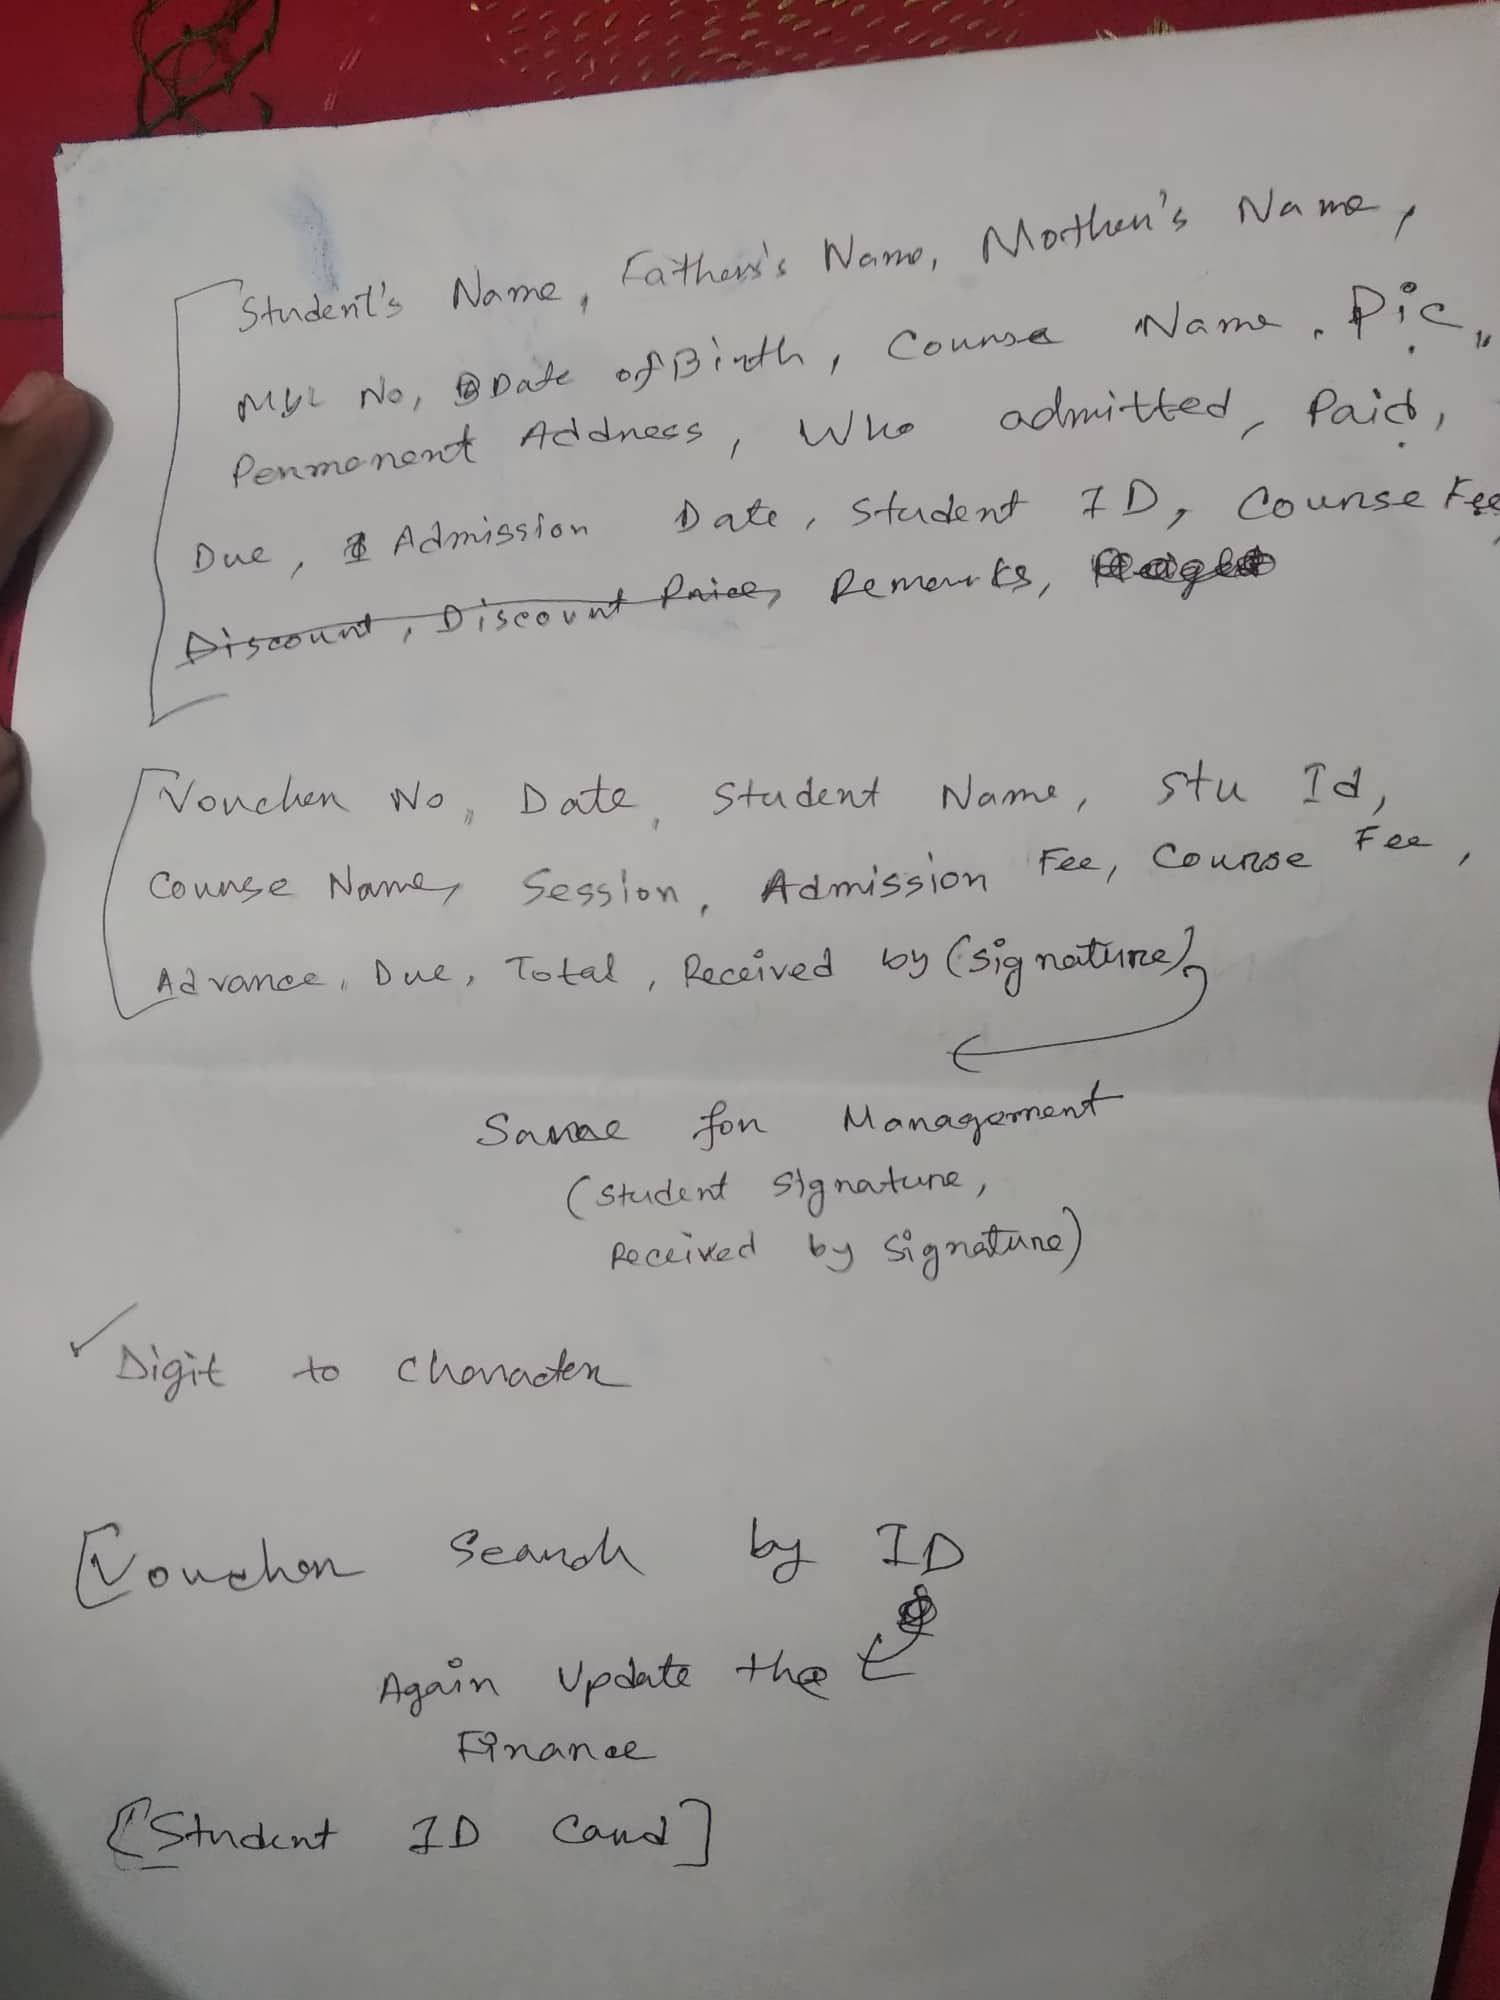 Student's Name, Father's Name, Mother's Name,
No, Date of Birth, Course Name, Pic,
Permanent Address, Who admitted, Paid,
Due, Admission Date, Student ID, Course Fee,
Discount, Discount Price, Remarks,
Voucher No, Date, Student Name, Stu Id,
Course Name, Session, Admission Fee, Course Fee,
Advance, Due, Total, Received by (signature),
Same for Management
(Student signature,
Received by signature)
✓ Digit to Character
[Voucher Search by ID
Again Update the
Finance
[Student ID Card]